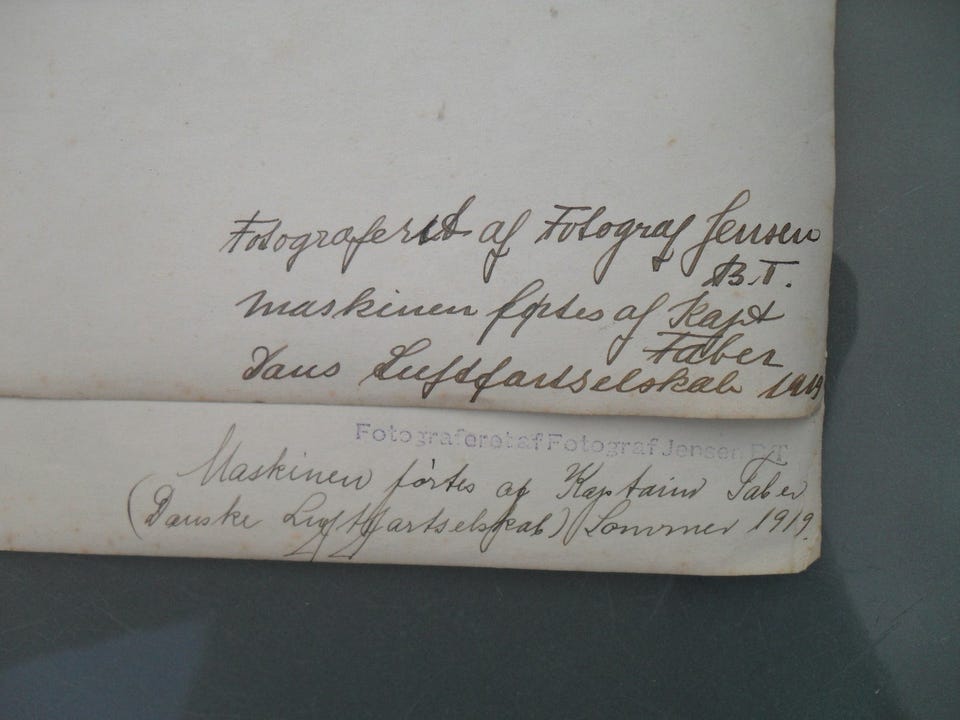 Fotograferet af Fotograf Jensen
B.T.
Maskinen førtes af Kapt
Faber
Dans Luftfartselskab 1919
Fotograferet af Fotograf Jensen B/T
Maskinen førtes af Kaptainn Faber
(Danske Luftfartselskab) Sommer 1919.